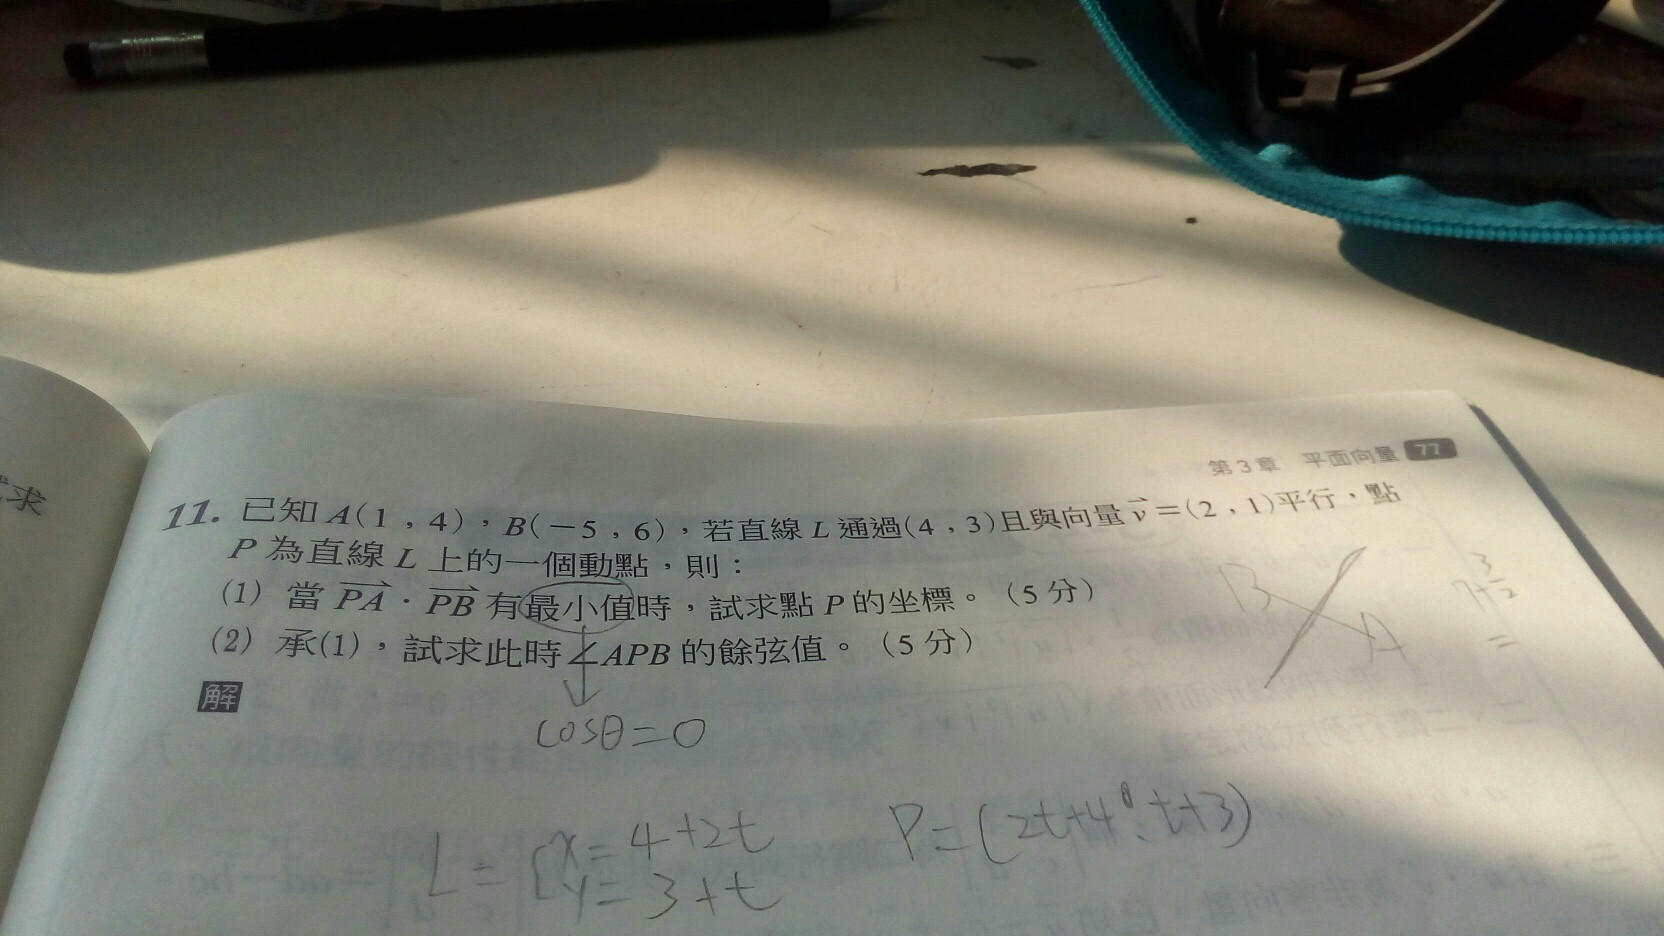 求
第3章 平面向量 77
11. 已知 A(1,4),B(-5,6),若直線 L 通過(4,3)且與向量 v⃗=(2,1)平行,點
P 為直線 L 上的一個動點,則:
(1) 當 PA⃗·PB⃗ 有最小值時,試求點 P 的坐標。(5分)
(2) 承(1),試求此時∠APB 的餘弦值。(5分)
解
B
A
cosθ=0
L= {x=4+2t
y=3+t
P=(2t+4, t+3)